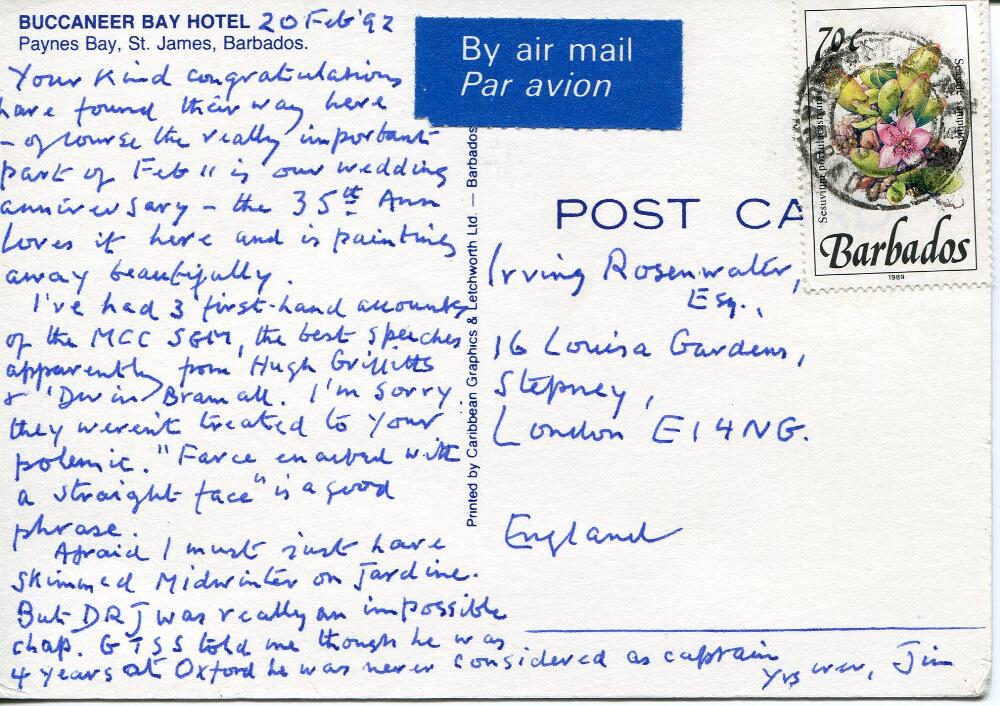 BUCCANEER BAY HOTEL 20 Feb '92
Paynes Bay, St. James, Barbados.
Your kind congratulations
have found their way here
– of course the really important
part of Feb 11 is our wedding
anniversary – the 35th Ann
loves it here and is painting
away beautifully.
I've had 3 first-hand accounts
of the MCC SGM, the best speeches
apparently from Hugh Griffiths
& Bramall. I'm sorry
they weren't treated to your
polemic. "Farce enacted with
a straight face" is a good
phrase.
Afraid I must just have
skimmed Midwinter on Jardine.
But DRJ was really an impossible
chap. GTSS told me though he was
4 years at Oxford he was never considered as captain
Yrs ever, Jim
By air mail
Par avion
Printed by Caribbean Graphics & Letchworth Ltd. — Barbados
POST CA
Irving Rosenwater,
Esq.,
16 Louisa Gardens,
Stepney,
London E1 4NG.
England
70c
Sesuvium portulacastrum
Seaside samphire
Barbados
1989